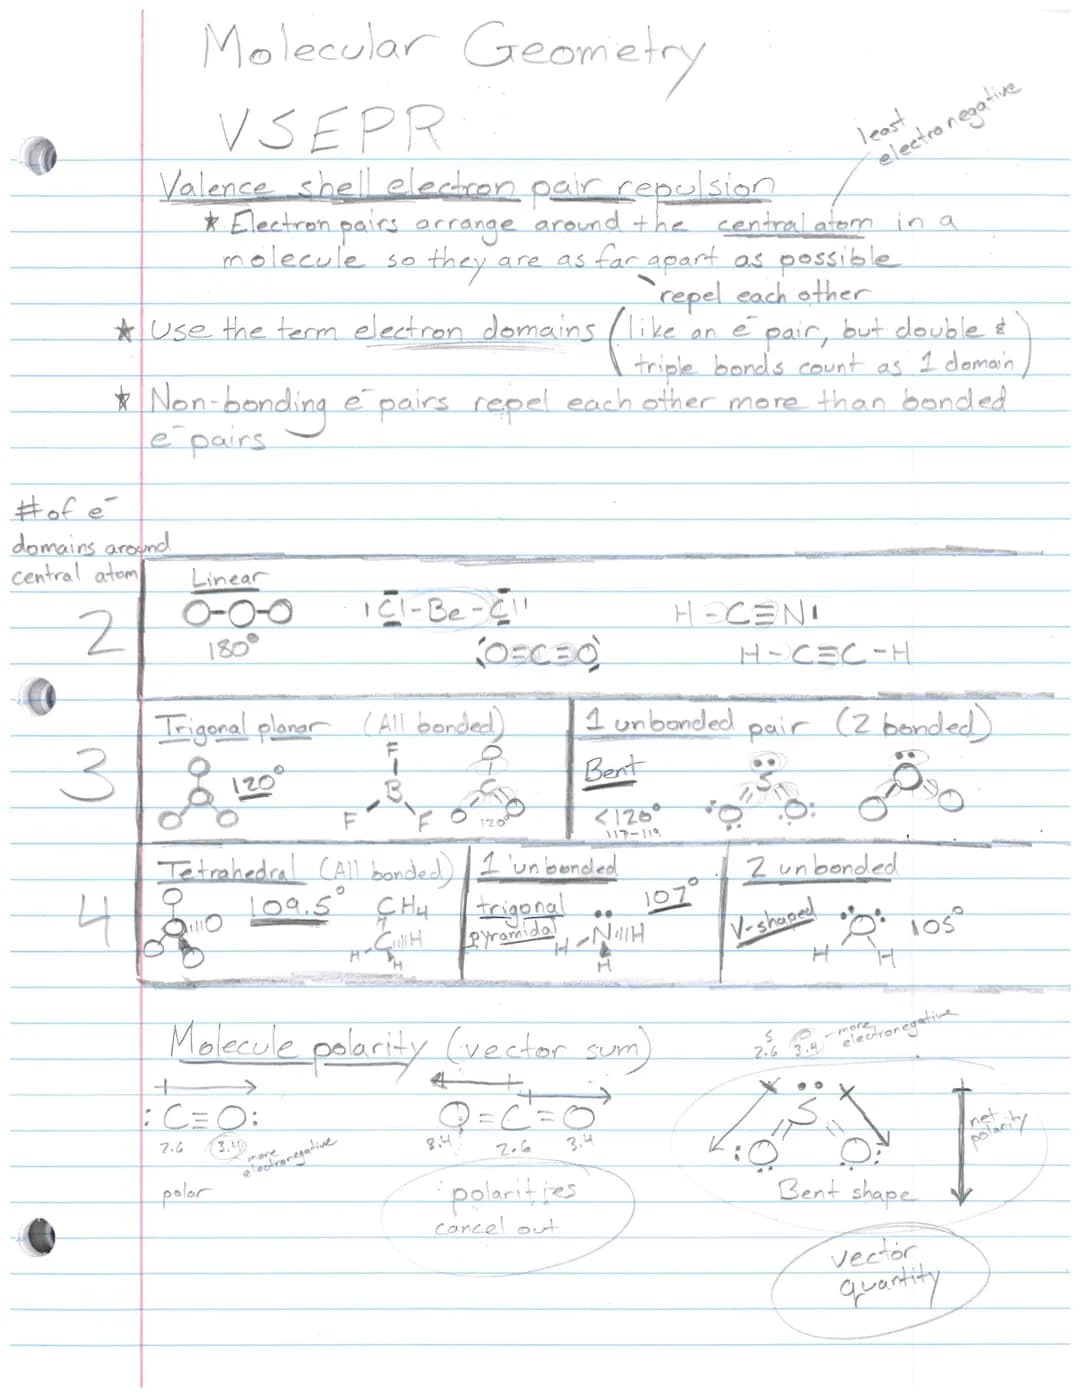 Molecular Geometry
VSEPR
least
electronegative
Valence shell electron pair repulsion
* Electron pairs arrange around the central atom in a
molecule so they are as far apart as possible
repel each other
* Use the term electron domains (like an e⁻ pair, but double &
triple bonds count as 1 domain)
* Non-bonding e⁻ pairs repel each other more than bonded
e⁻ pairs
# of e⁻
domains around
central atom
2
Linear
O-O-O
180°
Cl-Be-Cl
O=C=O
H-C≡N
H-C≡C-H
3
Trigonal planar (All bonded)
120°
F
B
F F
O
C
O O
120°
1 unbonded pair (2 bonded)
Bent
<120°
117-119
S
O O
O
O O
4
Tetrahedral (All bonded)
109.5°
CH4
H
C H
H H
1 unbonded
trigonal
pyramidal
107°
H N H
H
2 unbonded
V-shaped
O
H H
105°
Molecule polarity (vector sum)
S O
2.6 3.4
more
electronegative
:C=O:
2.6 3.4
more
electronegative
polar
O=C=O
3.4 2.6 3.4
polarities
cancel out
S
:O O:
Bent shape
net
polarity
vector
quantity